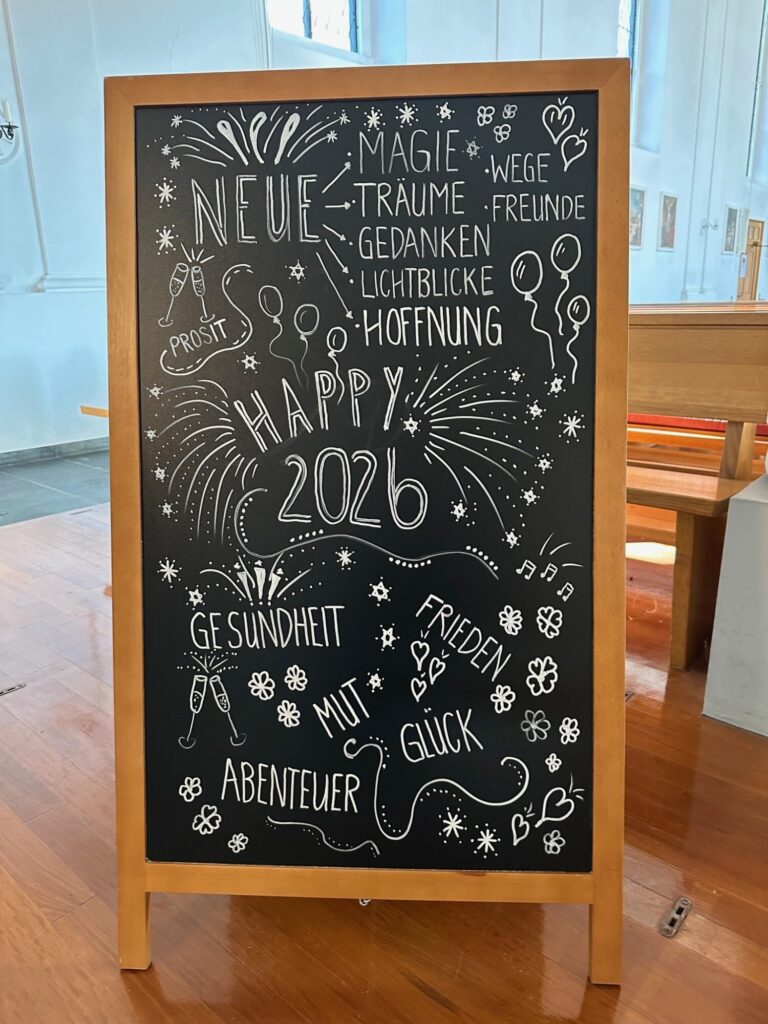 NEUE
MAGIE
TRÄUME
GEDANKEN
LICHTBLICKE
HOFFNUNG
WEGE
FREUNDE
PROSIT
HAPPY
2026
GESUNDHEIT
FRIEDEN
MUT
GLÜCK
ABENTEUER